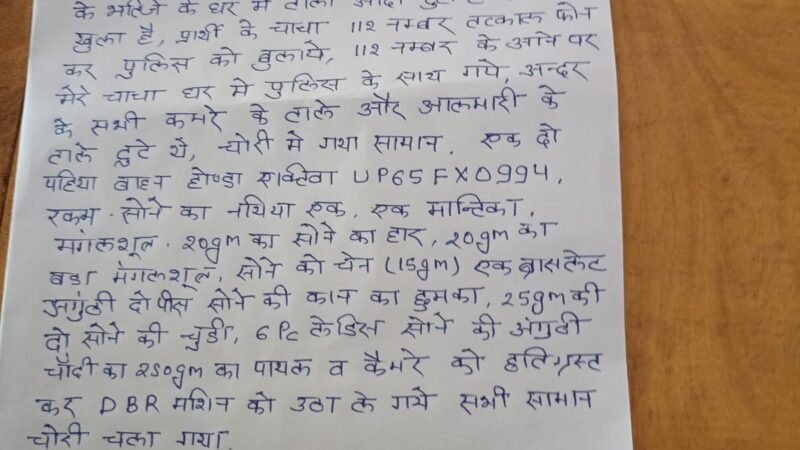 के भतिजे के घर में ताला
खुला है, प्रार्थी के चाचा 112 नम्बर तत्काल फोन
कर पुलिस को बुलाये, 112 नम्बर के आने पर
मेरे चाचा घर मे पुलिस के साथ गये, अन्दर
के सभी कमरे के ताले और आलमारी के
ताले टुटे थे, चोरी मे गया सामान. एक दो
पहिया वाहन होण्डा एक्टिवा UP65FX0994,
रकम. सोने का नथिया एक. एक मान्टिका,
मंगलशूल. 20gm का सोने का हार, 20gm का
बडा मंगलशूल, सोने को चेन (15gm) एक ब्रासलेट
अगुंठी दो पीस सोने की कान का झुमका, 25gm की
दो सोने की चुडी, 6 Pc लेडिस सोने की अंगुठी
चाँदी का 250gm का पायल व कैमरे को क्षतिग्रस्त
कर DBR मशिन को उठा ले गये सभी सामान
चोरी चला गया.